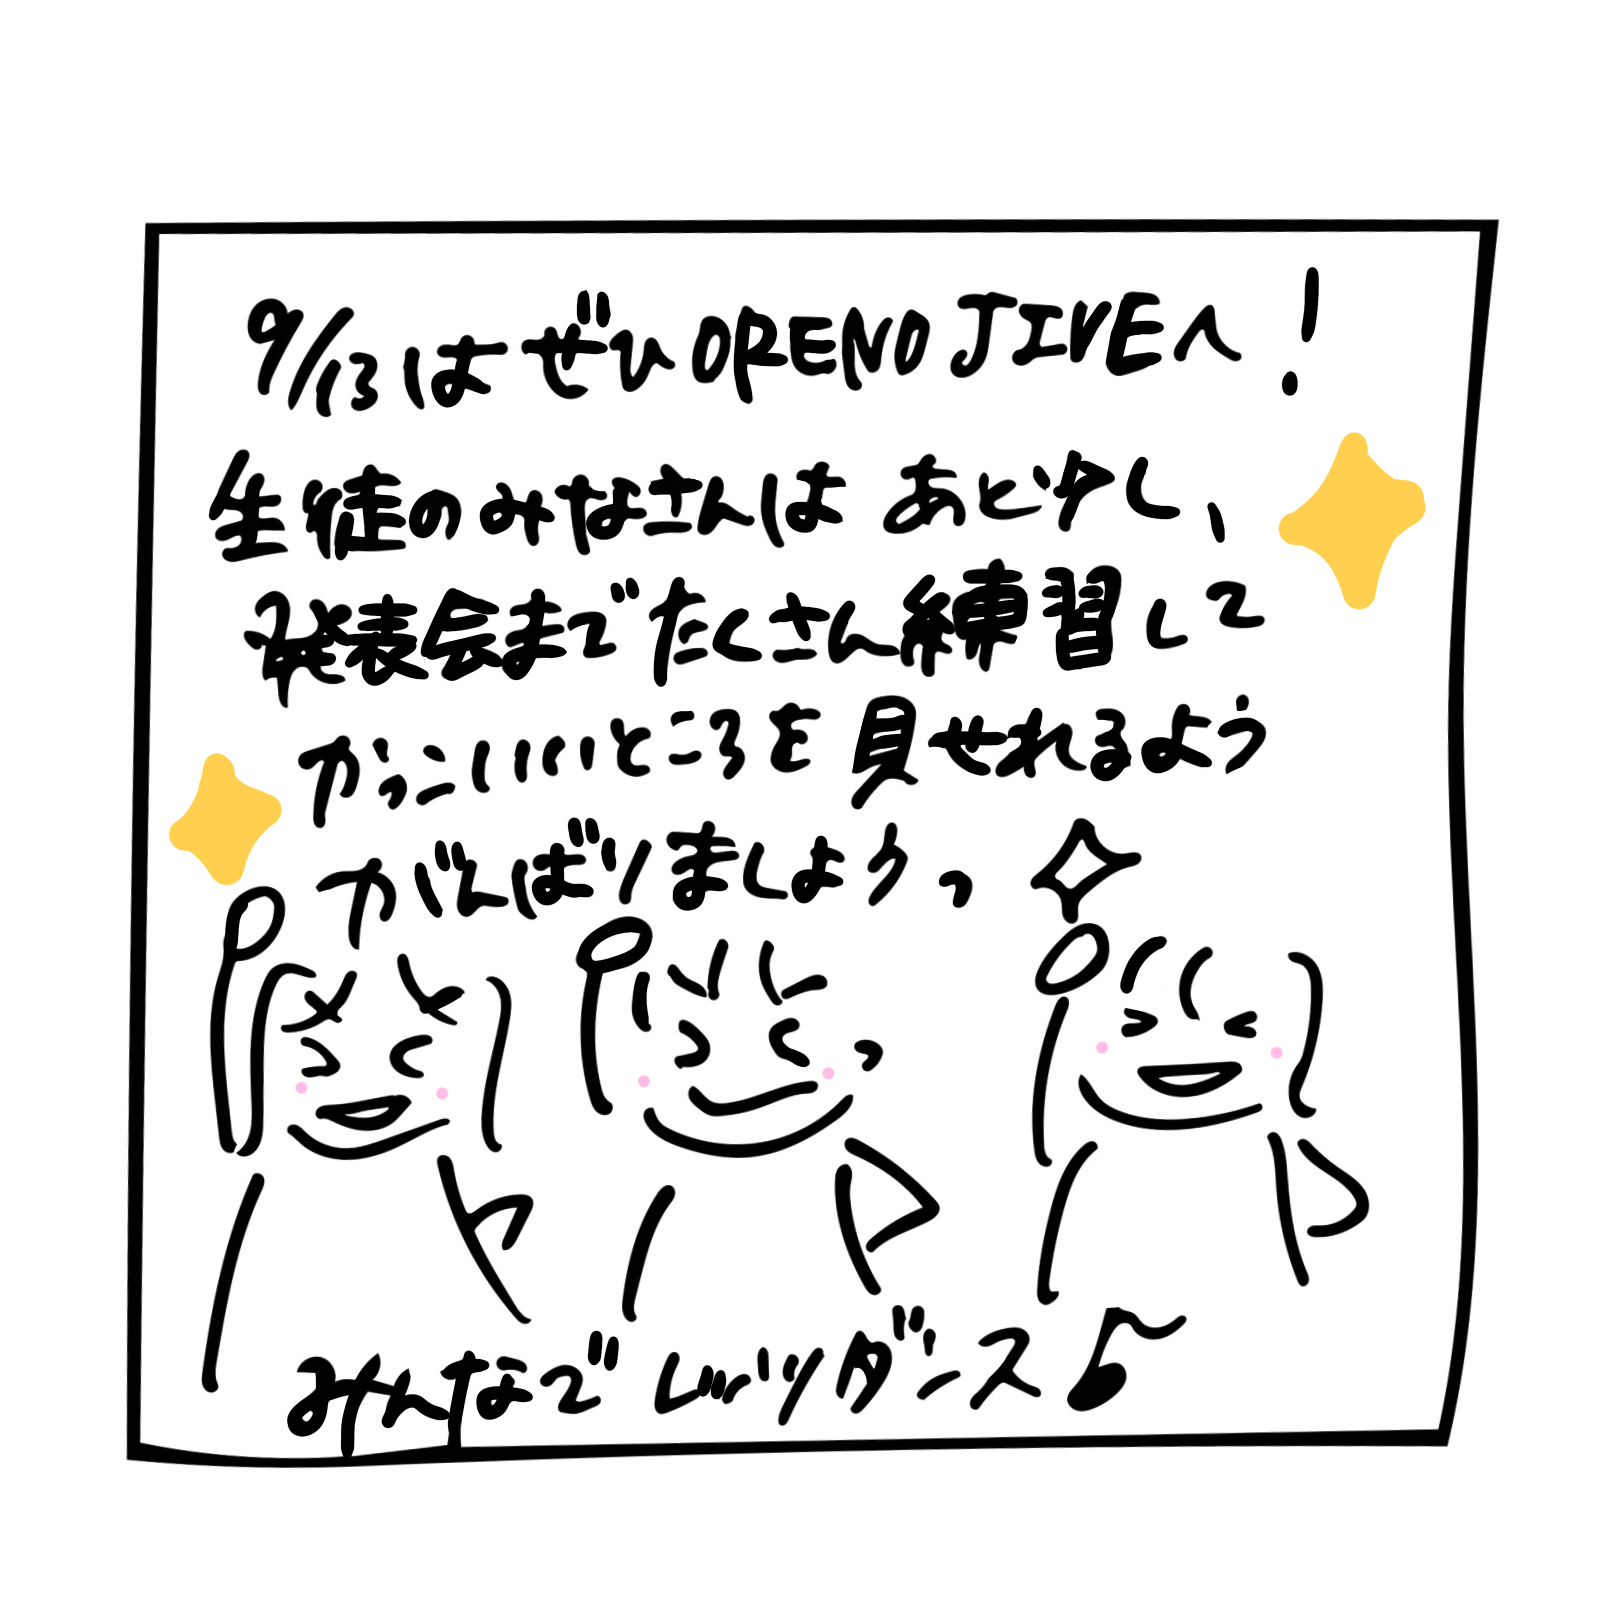 9/13はぜひORENO JIVEへ!
生徒のみなさんは あと少し、
発表会までたくさん練習して
かっこいいところを見せれるよう
がんばりましょうっ
みんなでレッツダンス♪